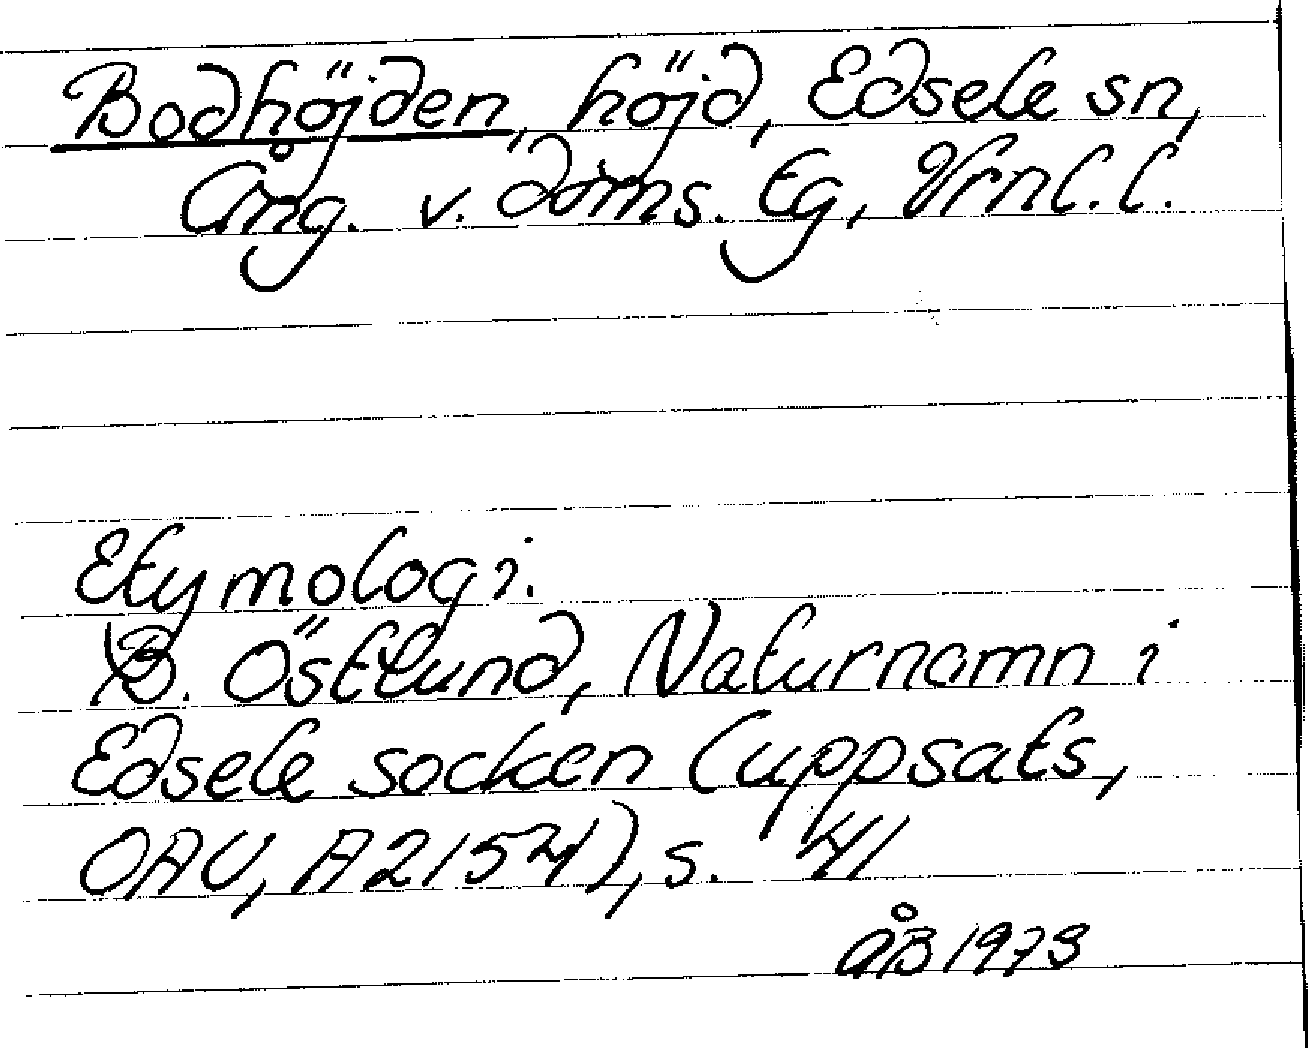 Bodhöjden, höjd, Edsele sn,
Ång. v. doms. tg, Vrnl. l.
Etymologi.
B. Östlund, Naturnamn i
Edsele socken (uppsats,
OAU, A2154), s. 41
ÅB 1973